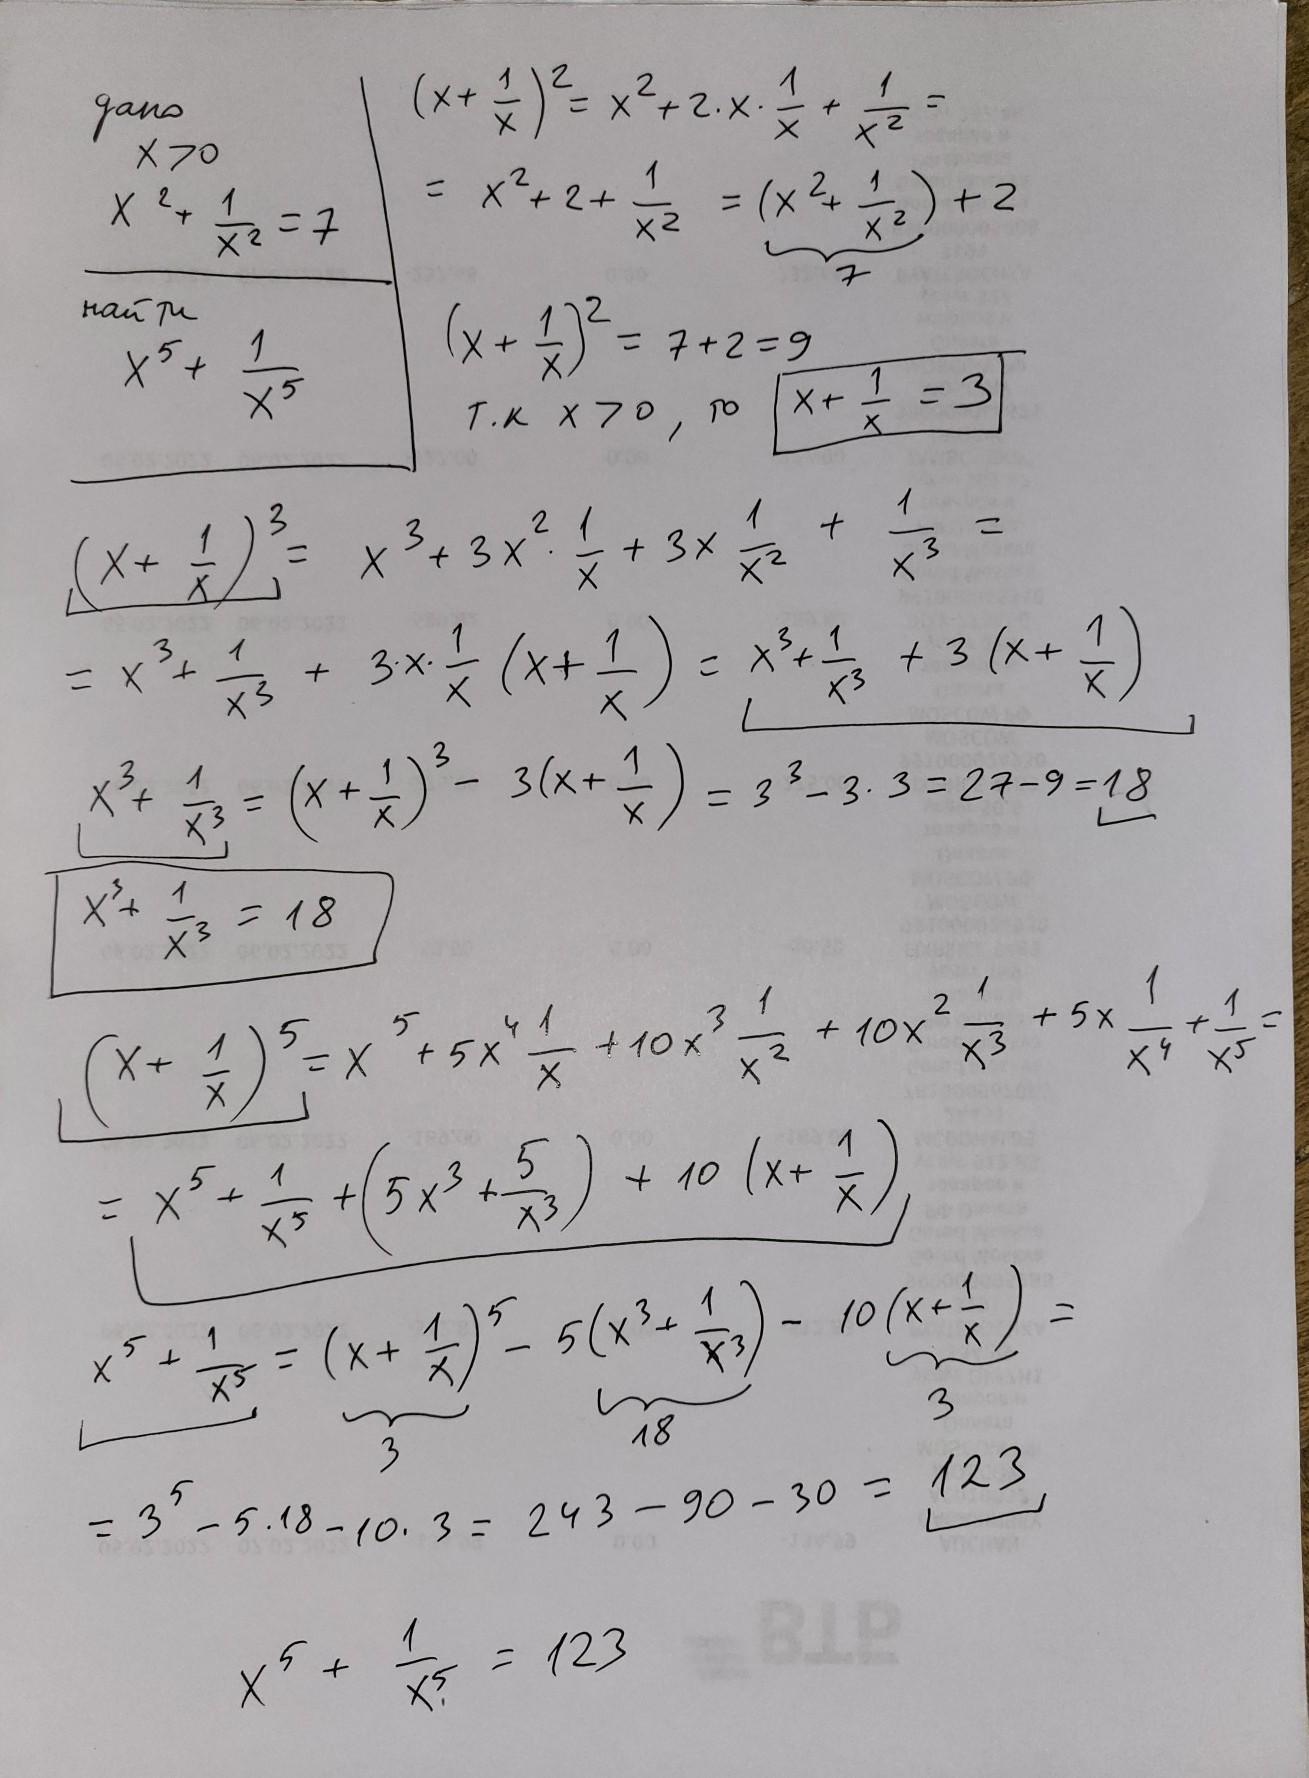 дано
x > 0
x² + 1/x² = 7
найти
x⁵ + 1/x⁵
(x + 1/x)² = x² + 2·x·1/x + 1/x² =
= x² + 2 + 1/x² = (x² + 1/x²) + 2
7
(x + 1/x)² = 7 + 2 = 9
т.к x > 0, то x + 1/x = 3
(x + 1/x)³ = x³ + 3x²·1/x + 3x 1/x² + 1/x³ =
= x³ + 1/x³ + 3·x·1/x (x + 1/x) = x³ + 1/x³ + 3(x + 1/x)
x³ + 1/x³ = (x + 1/x)³ − 3(x + 1/x) = 3³ − 3·3 = 27 − 9 = 18
x³ + 1/x³ = 18
(x + 1/x)⁵ = x⁵ + 5x⁴ 1/x + 10x³ 1/x² + 10x² 1/x³ + 5x 1/x⁴ + 1/x⁵ =
= x⁵ + 1/x⁵ + (5x³ + 5/x³) + 10(x + 1/x)
x⁵ + 1/x⁵ = (x + 1/x)⁵ − 5(x³ + 1/x³) − 10(x + 1/x) =
3 18 3
= 3⁵ − 5·18 − 10·3 = 243 − 90 − 30 = 123
x⁵ + 1/x⁵ = 123